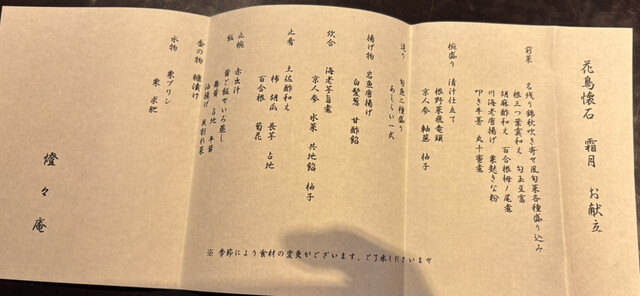 花鳥懐石 霜月 お献立
前菜 名残り錦秋吹き寄せ風旬菜各種盛り込み
根三つ葉雲和え 勾玉豆富
胡麻酢和え 百合根栂ノ尾煮
川海老唐揚げ 栗麩きな粉
叩き牛蒡 丸十蜜煮
椀盛り 清汁仕立て
根野菜飛竜頭
京人参 軸蓮 柚子
造り 旬魚二種盛り
あしらい一式
揚げ物 岩魚唐揚げ
白髪葱 甘酢餡
炊合 海老芋旨煮
京人参 水菜 共地餡 柚子
止肴 土佐酢和え
柿 胡瓜 長芋 占地
百合根 菊花
止椀 赤出汁
飯 茸ご飯せいろ蒸し
舞茸 占地 平茸
油揚げ 貝割れ菜
香の物 糠漬け
水物 栗プリン
栗 求肥
燈々庵
※ 季節により食材の変更がございます、ご了承くださいませ